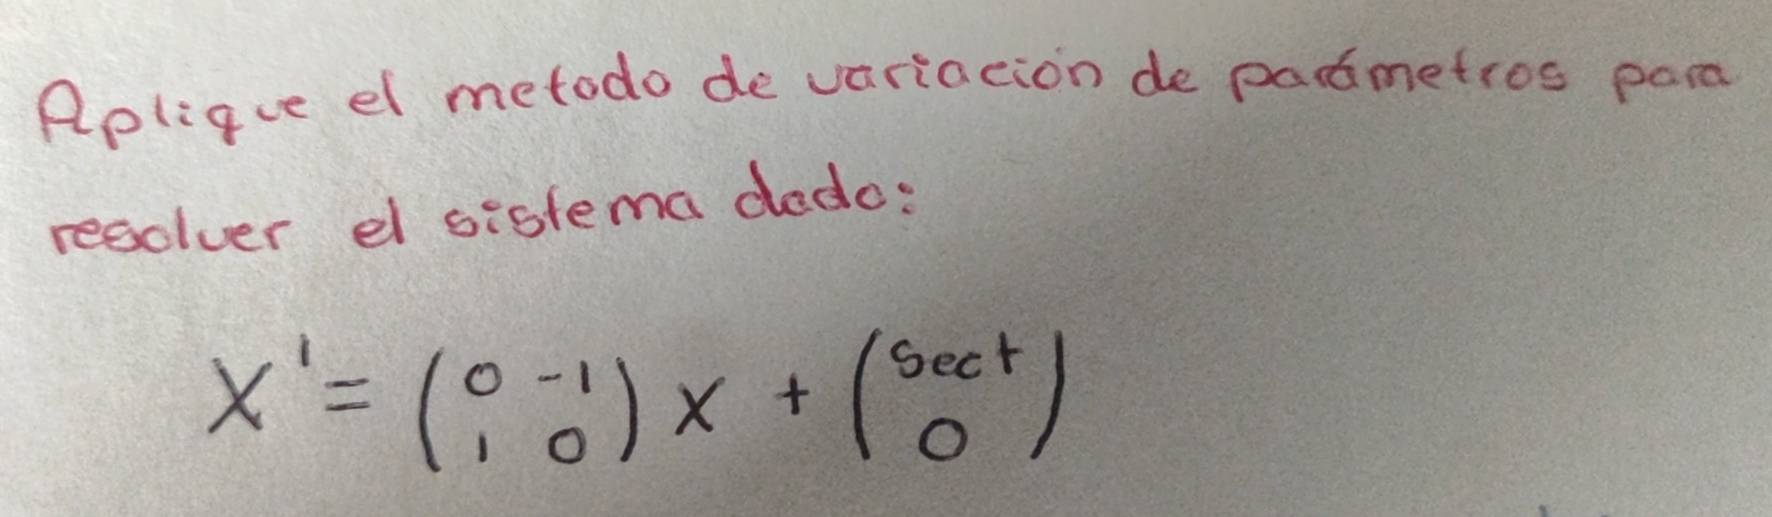 Aplique el metodo de variación de parámetros para
resolver el sistema dado:
X' = (0 -1) X + (sect)
(1 0) (0)